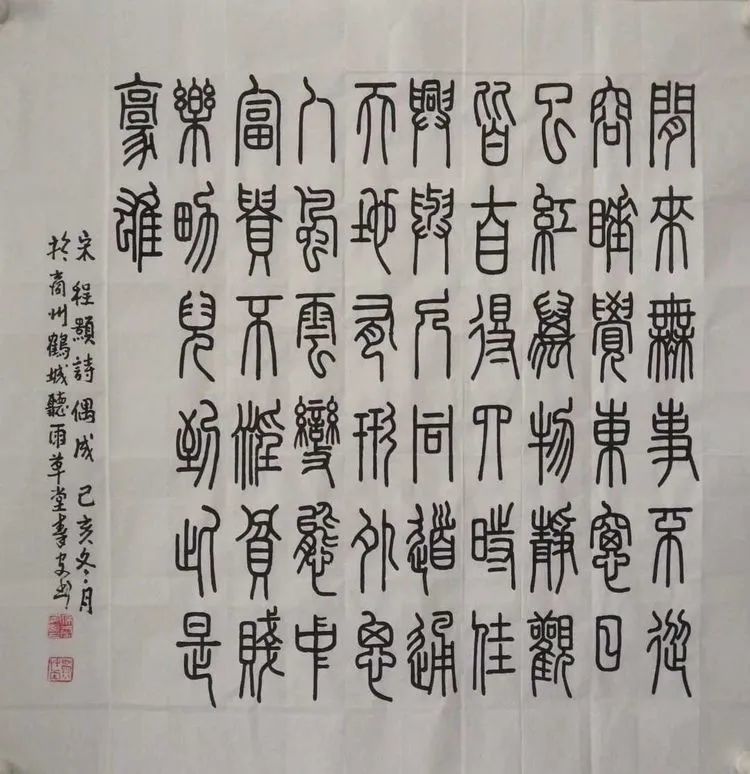 閒來無事不從
容睡覺東窗日
已紅萬物靜觀
皆自得四時佳
興與人同道通
天地有形外思
入風雲變態中
富貴不淫貧賤
樂男兒到此是
豪雄
宋程顥詩偶成己亥冬月
於商州鶴城聽雨草堂